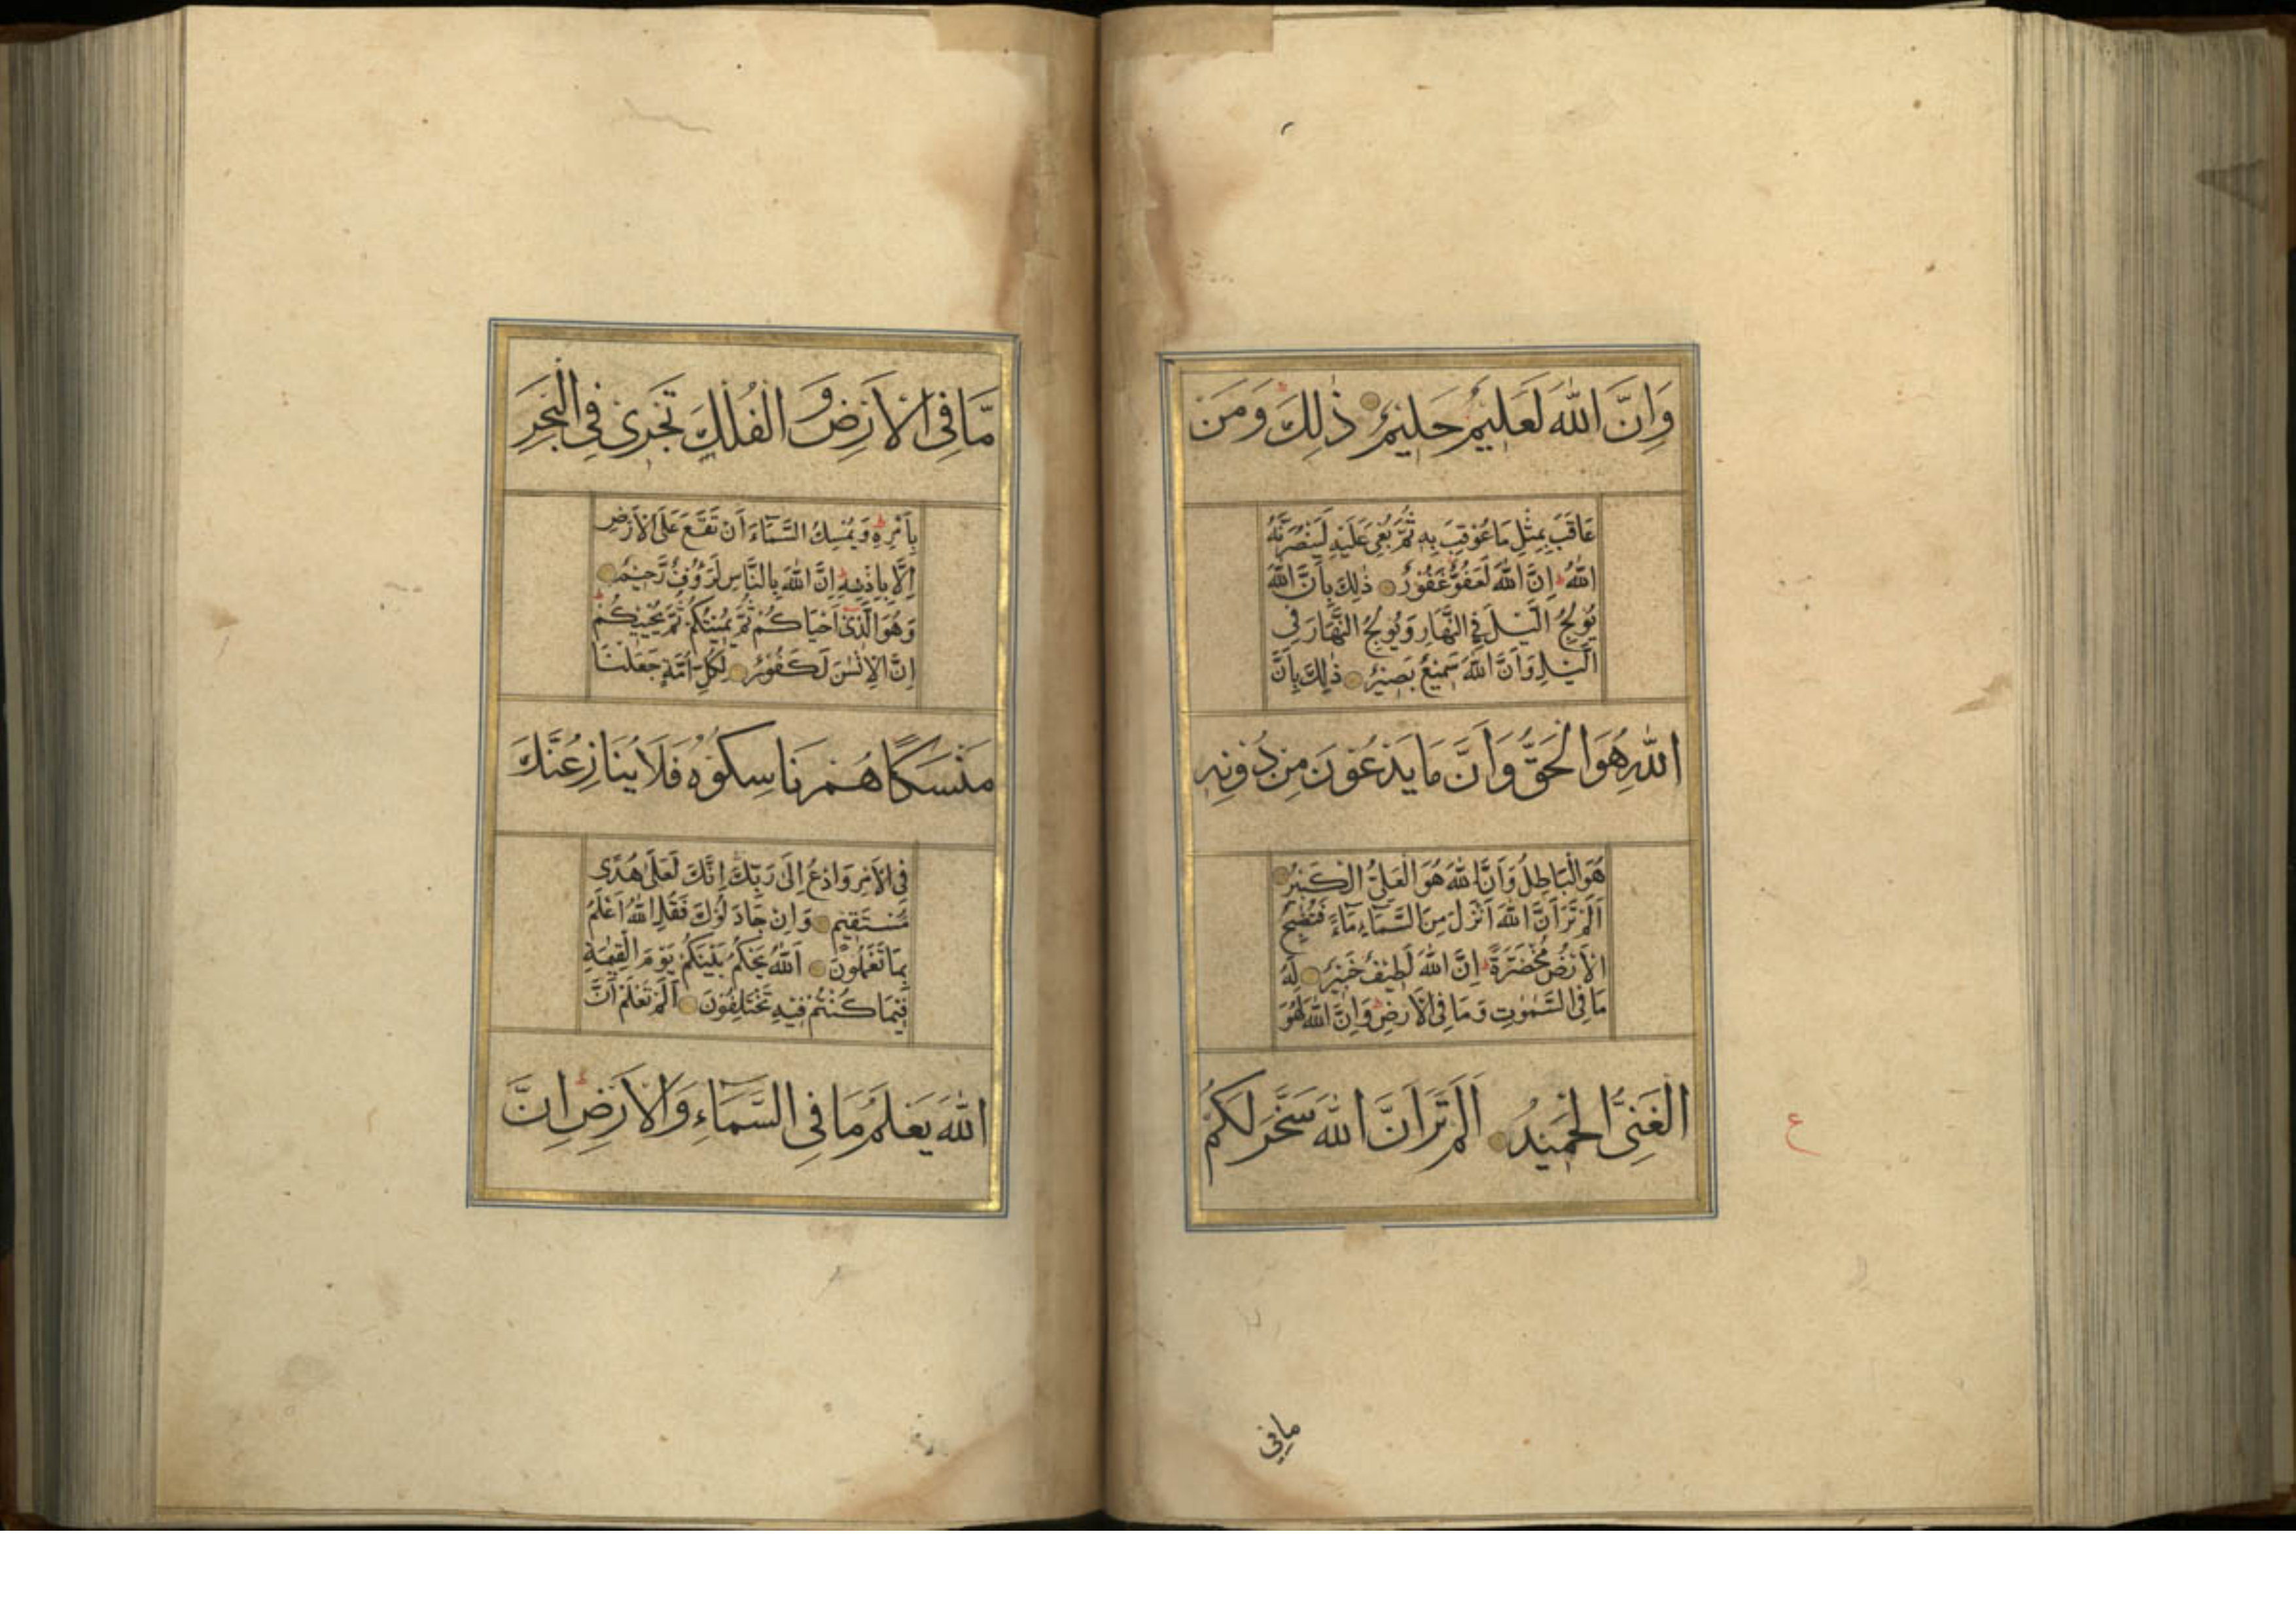 وَاِنَّ اللّٰهَ لَعَلِيمٌ حَلِيمٌ ذٰلِكَ ۚ وَمَنْ
عَاقَبَ بِمِثْلِ مَا عُوقِبَ بِهِ ثُمَّ بُغِىَ عَلَيْهِ لَيَنْصُرَنَّهُ
اللّٰهُ ط اِنَّ اللّٰهَ لَعَفُوٌّ غَفُورٌ ذٰلِكَ بِاَنَّ اللّٰهَ
يُولِجُ الَّيْلَ فِى النَّهَارِ وَيُولِجُ النَّهَارَ فِى
الَّيْلِ وَاَنَّ اللّٰهَ سَمِيعٌ بَصِيرٌ ذٰلِكَ بِاَنَّ
اللّٰهَ هُوَ الْحَقُّ وَاَنَّ مَا يَدْعُونَ مِنْ دُونِهِ
هُوَ الْبَاطِلُ وَاَنَّ اللّٰهَ هُوَ الْعَلِىُّ الْكَبِيرُ
اَلَمْ تَرَ اَنَّ اللّٰهَ اَنْزَلَ مِنَ السَّمَآءِ مَآءً فَتُصْبِحُ
الْاَرْضُ مُخْضَرَّةً ط اِنَّ اللّٰهَ لَطِيفٌ خَبِيرٌ لَهُ
مَا فِى السَّمٰوٰتِ وَمَا فِى الْاَرْضِ ط وَاِنَّ اللّٰهَ لَهُوَ
الْغَنِىُّ الْحَمِيدُ اَلَمْ تَرَ اَنَّ اللّٰهَ سَخَّرَ لَكُمْ
ع
مافي
مَّا فِى الْاَرْضِ وَ الْفُلْكَ تَجْرِى فِى الْبَحْرِ
بِاَمْرِهِ ط وَيُمْسِكُ السَّمَآءَ اَنْ تَقَعَ عَلَى الْاَرْضِ
اِلَّا بِاِذْنِهِ ط اِنَّ اللّٰهَ بِالنَّاسِ لَرَؤُفٌ رَّحِيمٌ
وَهُوَ الَّذِىٓ اَحْيَاكُمْ ثُمَّ يُمِيتُكُمْ ثُمَّ يُحْيِيكُمْ ط
اِنَّ الْاِنْسٰنَ لَكَفُورٌ لِكُلِّ اُمَّةٍ جَعَلْنَا
مَنْسَكًا هُمْ نَاسِكُوهُ فَلَا يُنَازِعُنَّكَ
فِى الْاَمْرِ وَادْعُ اِلٰى رَبِّكَ اِنَّكَ لَعَلٰى هُدًى
مُسْتَقِيمٍ وَاِنْ جَادَلُوكَ فَقُلِ اللّٰهُ اَعْلَمُ
بِمَا تَعْمَلُونَ اَللّٰهُ يَحْكُمُ بَيْنَكُمْ يَوْمَ الْقِيٰمَةِ
فِيمَا كُنْتُمْ فِيهِ تَخْتَلِفُونَ اَلَمْ تَعْلَمْ اَنَّ
اللّٰهَ يَعْلَمُ مَا فِى السَّمَآءِ وَالْاَرْضِ ط اِنَّ